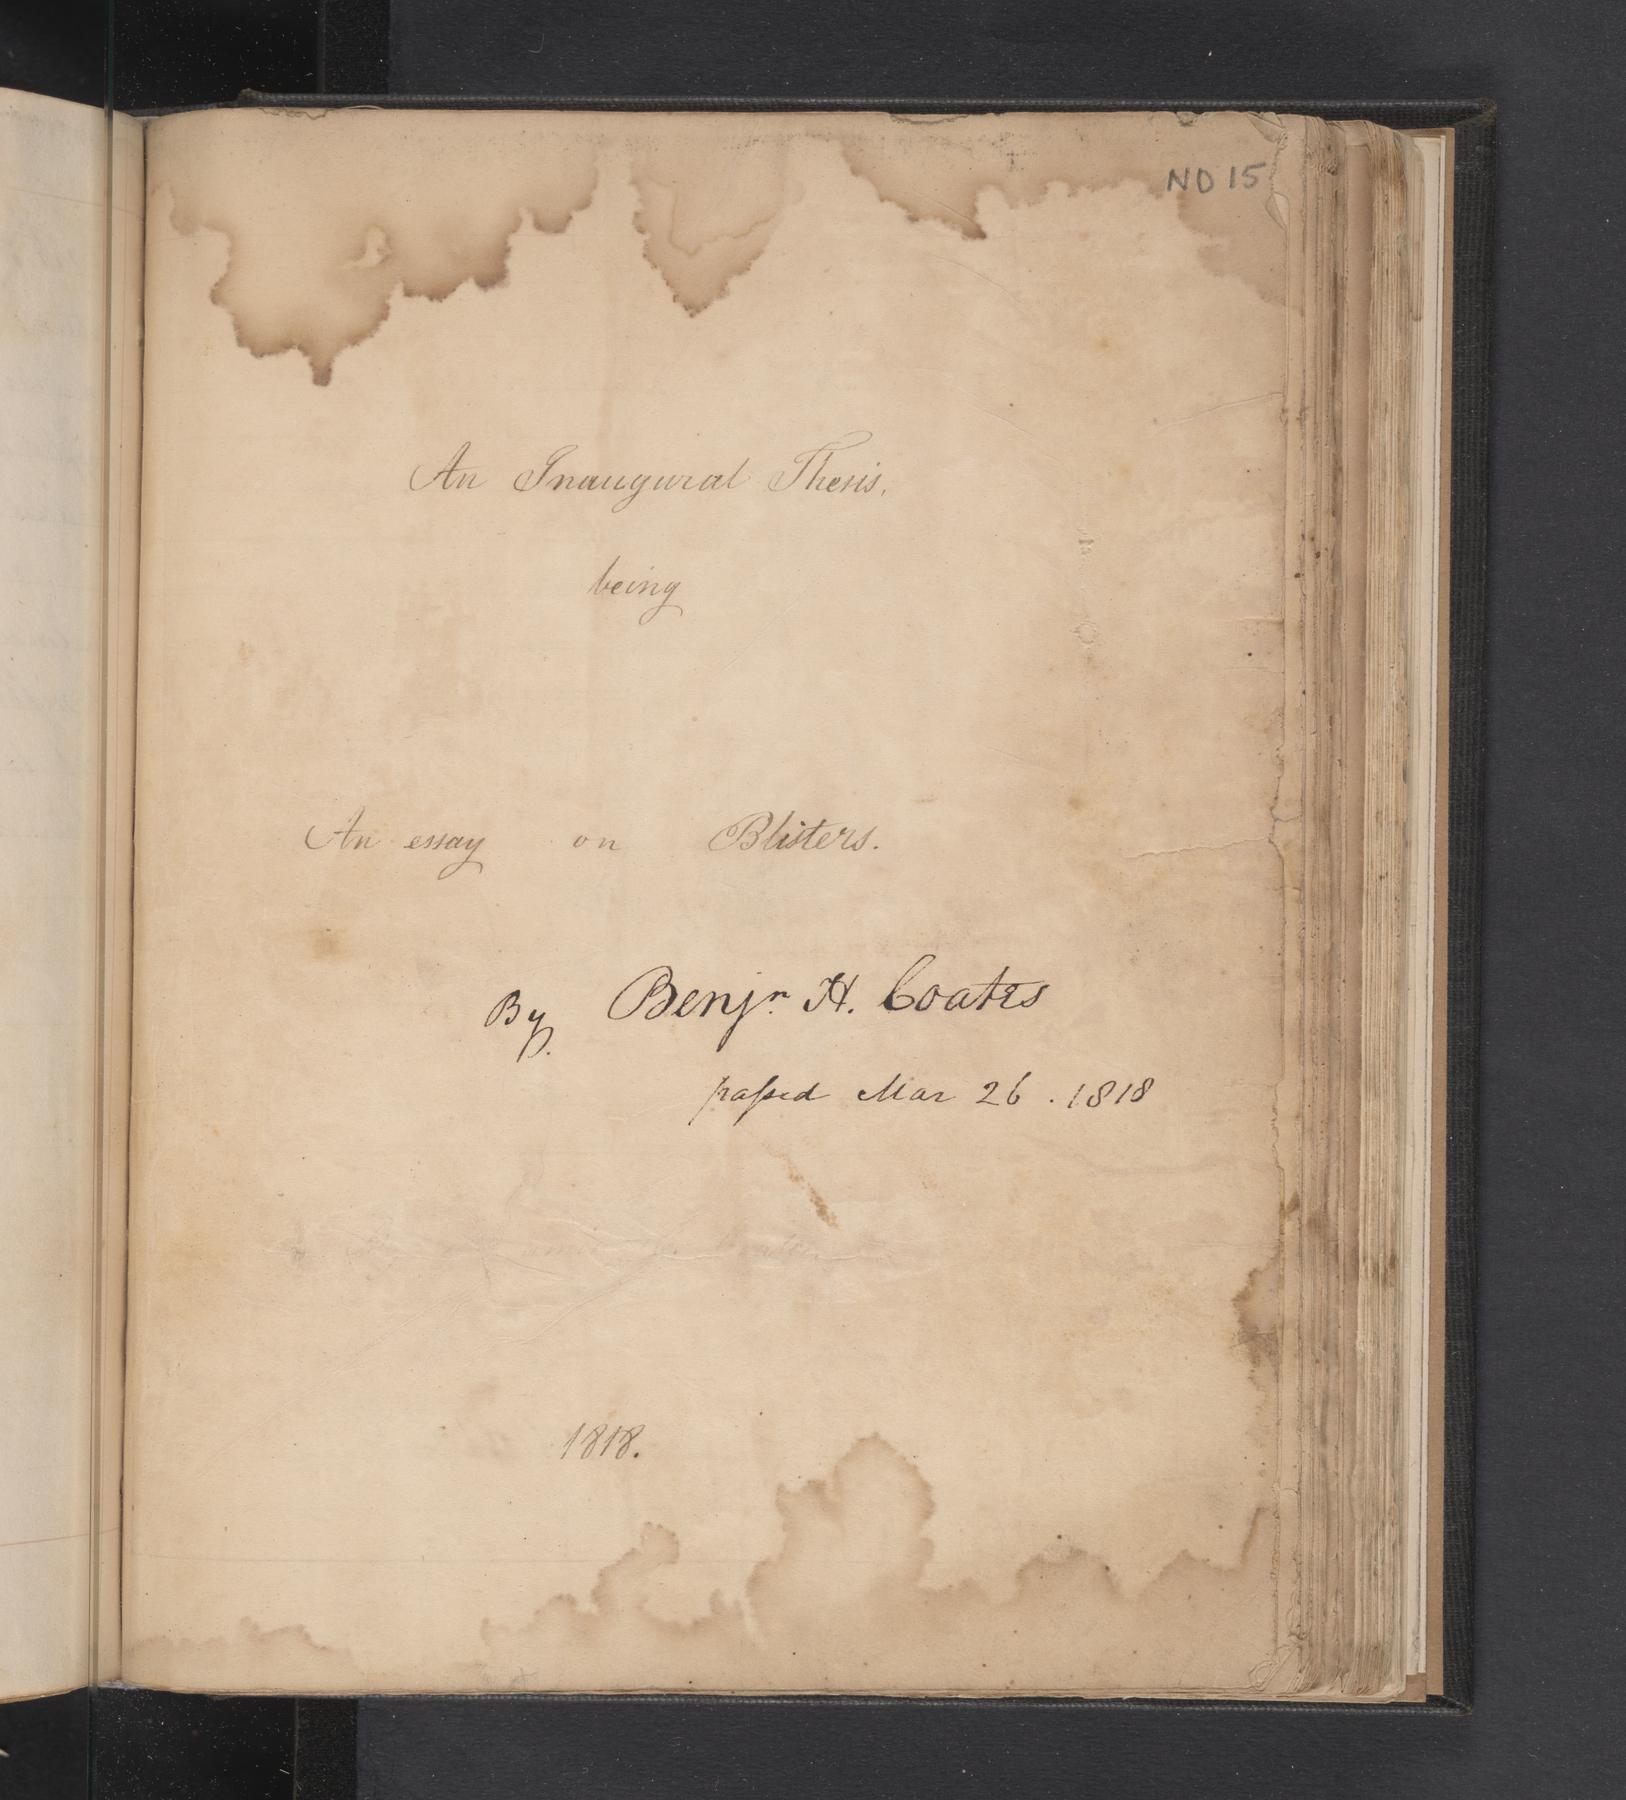 NO 15
An Inaugural Thesis.
being
An essay on Blisters.
By Benjn. H. Coates
paſsed Mar 26. 1818
1818.